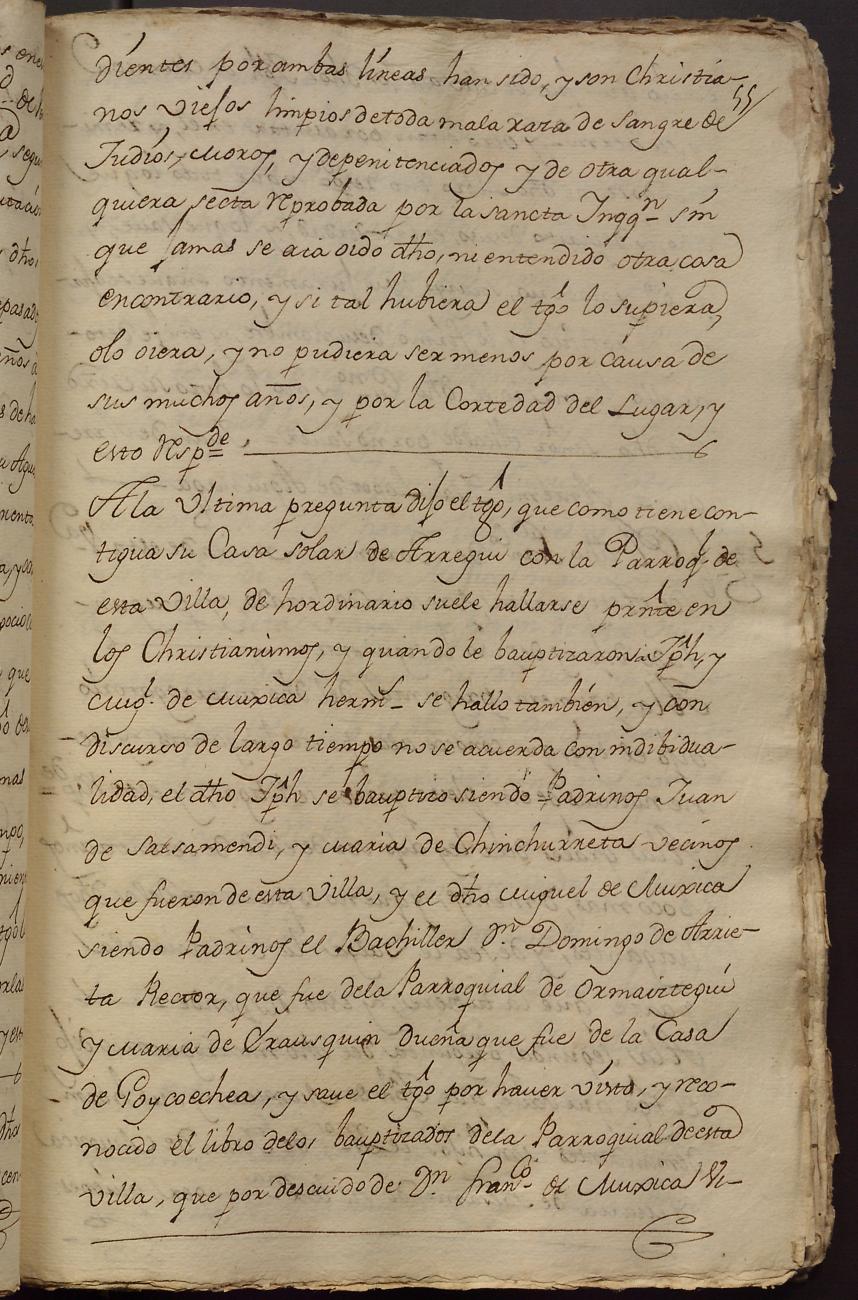 dientes por ambas lineas han sido, y son Christia-
55
nos viejos limpios de toda mala raza de sangre de
Judios, Moros, y de penitenciados y de otra qual-
quiera secta reprobada por la sancta Inqqn sin
que jamas se aia oido dho, ni entendido otra cosa
encontrario, y si tal hubiera el tgo lo supiera,
olo oiera, y no pudiera ser menos por causa de
sus muchos años, y por la Cortedad del Lugar, y
esto Respde
A la Vltima pregunta dijo el tgo, que como tiene con-
tigua su Casa solar de Arregui con la Parroql de
esta villa, de hordinario suele hallarse prnte en
los Christianismos, y quando le bauptizaron a Jph, y
Migl de Muxica hermos se hallo tambien, y con
discurso de largo tiempo no se acuerda con indibidua-
lidad, el dho Jph se bauptizo siendo Padrinos Juan
de Salsamendi, y Maria de Chinchurreta vecinos
que fueron de esta Villa, y el dho Miguel de Muxica
siendo Padrinos el Bachiller Dn Domingo de Arrie-
ta Rector, que fue dela Parroquial de Ormaiztegui
y Maria de Yrausquin Dueña que fue de la Casa
de Goycoechea, y save el tgo por haver visto, y reco-
nocido el libro delos bauptizados dela Parroquial de esta
villa, que por descuido de Dn Franco de Muxica Vi-